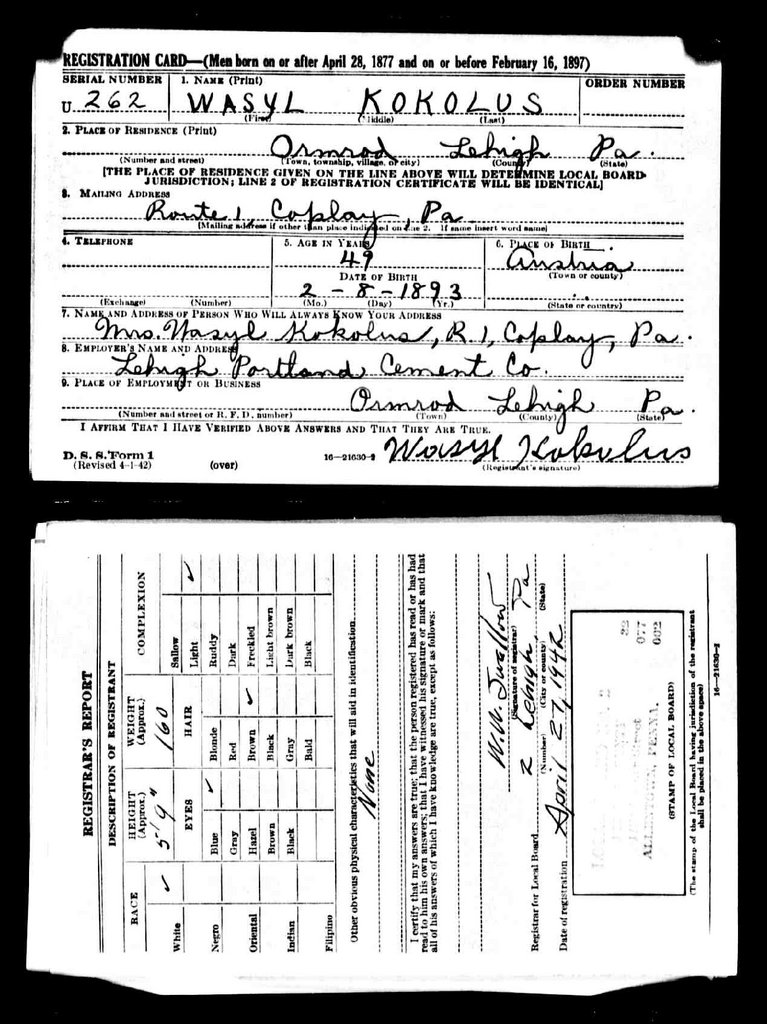 REGISTRATION CARD—(Men born on or after April 28, 1877 and on or before February 16, 1897)
SERIAL NUMBER 1. NAME (Print) ORDER NUMBER
U 262 WASYL KOKOLUS
(First) (Middle) (Last)
2. PLACE OF RESIDENCE (Print)
Ormrod Lehigh Pa.
(Number and street) (Town, township, village, or city) (County) (State)
[THE PLACE OF RESIDENCE GIVEN ON THE LINE ABOVE WILL DETERMINE LOCAL BOARD
JURISDICTION; LINE 2 OF REGISTRATION CERTIFICATE WILL BE IDENTICAL]
3. MAILING ADDRESS
Route 1, Coplay, Pa
[Mailing address if other than place indicated on line 2. If same insert word same]
4. TELEPHONE 5. AGE IN YEARS 6. PLACE OF BIRTH
49 Austria
DATE OF BIRTH (Town or county)
2 - 8 - 1893
(Exchange) (Number) (Mo.) (Day) (Yr.) (State or country)
7. NAME AND ADDRESS OF PERSON WHO WILL ALWAYS KNOW YOUR ADDRESS
Mrs. Wasyl Kokolus, R. 1, Coplay, Pa.
8. EMPLOYER'S NAME AND ADDRESS
Lehigh Portland Cement Co.
9. PLACE OF EMPLOYMENT OR BUSINESS
Ormrod Lehigh Pa.
(Number and street or R. F. D. number) (Town) (County) (State)
I AFFIRM THAT I HAVE VERIFIED ABOVE ANSWERS AND THAT THEY ARE TRUE.
D. S. S. Form 1
(Revised 4-1-42) (over) 16—21630-2 Wasyl Kokolus
(Registrant's signature)
REGISTRAR'S REPORT
DESCRIPTION OF REGISTRANT
RACE HEIGHT (Approx.) WEIGHT (Approx.) COMPLEXION
White ✓ 5' 9" 160 Sallow
EYES HAIR Light ✓
Negro Blue ✓ Blonde Ruddy
Gray Red Dark
Oriental Hazel Brown ✓ Freckled
Brown Black Light brown
Indian Black Gray Dark brown
Bald Black
Filipino
Other obvious physical characteristics that will aid in identification
None
I certify that my answers are true; that the person registered has read or has had
read to him his own answers; that I have witnessed his signature or mark and that
all of his answers of which I have knowledge are true, except as follows:
W. W. Swallow
(Signature of registrar)
Registrar for Local Board 2 Lehigh Pa
(Number) (City or county) (State)
Date of registration April 27, 1942
2 32
077
002
ALLENTOWN, PENNA.
(STAMP OF LOCAL BOARD)
(The stamp of the Local Board having jurisdiction of the registrant
shall be placed in the above space)
16—21630-2